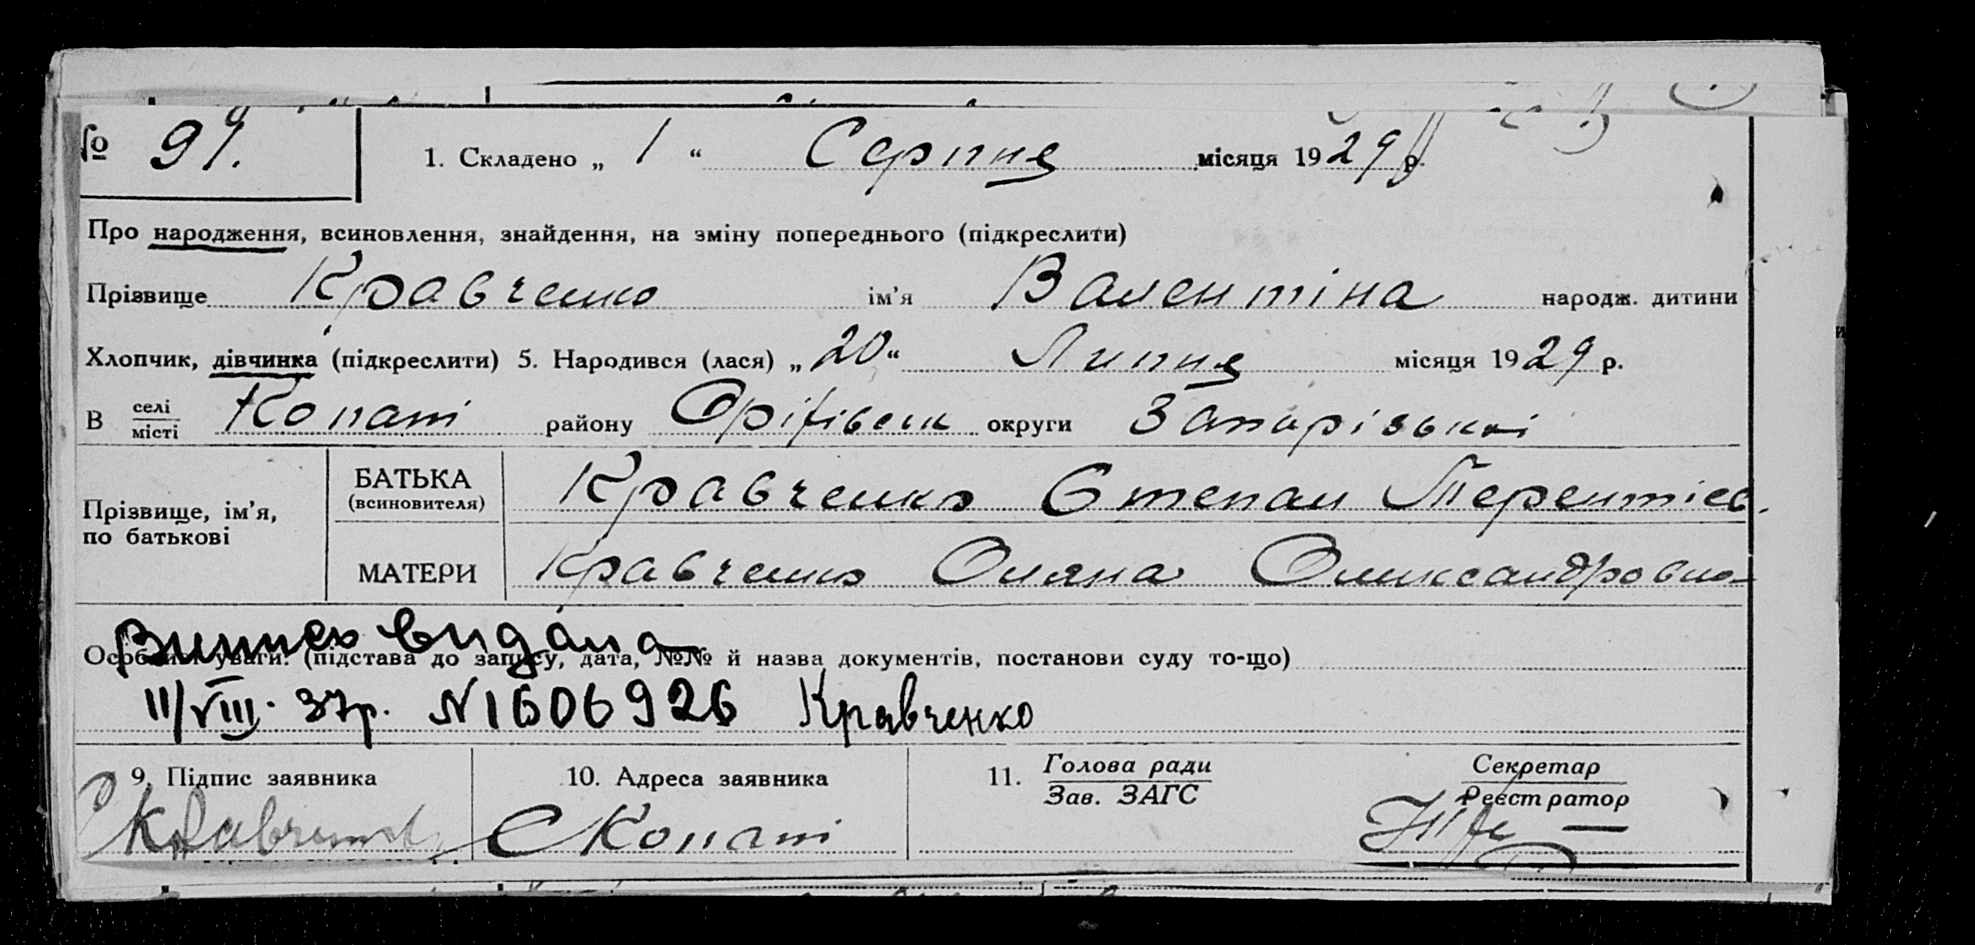 № 91.
1. Складено „ 1 “ Серпня місяця 1929 р.
Про народження, всиновлення, знайдення, на зміну попереднього (підкреслити)
Прізвище Кравченко ім’я Валентіна народж. дитини
Хлопчик, дівчинка (підкреслити) 5. Народився (лася) „ 20 “ Липня місяця 1929 р.
В селі місті Копані району Оріхівськ округи Запорізької
Прізвище, ім’я, по батькові
БАТЬКА (всиновителя) Кравченко Степан Терентіев.
МАТЕРИ Кравченко Оляна Олександровна
Випись видана
Особливі уваги: (підстава до запису, дата, №№ й назва документів, постанови суду то-що)
11/VIII. 37р. N1606926 Кравченко
9. Підпис заявника 10. Адреса заявника 11. Голова ради Зав. ЗАГС Секретар Реєстратор
С Копані